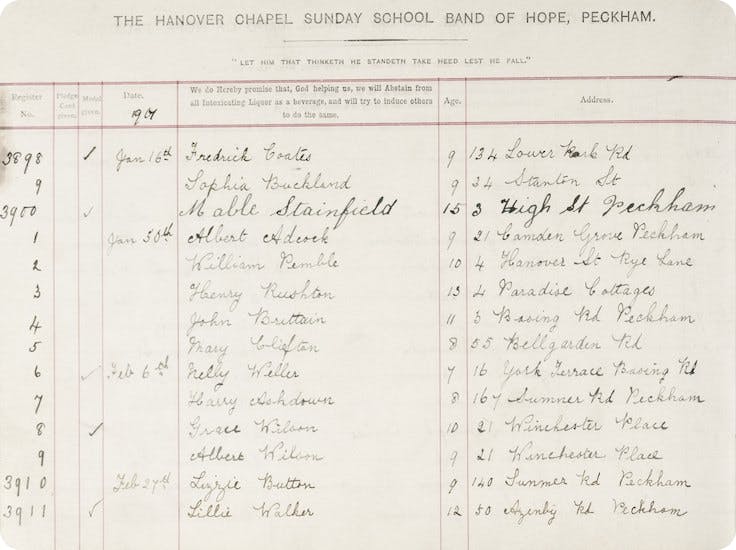 THE HANOVER CHAPEL SUNDAY SCHOOL BAND OF HOPE, PECKHAM.
"LET HIM THAT THINKETH HE STANDETH TAKE HEED LEST HE FALL."
Register No. Pledge Card given. Medal given. Date. 1901 We do Hereby promise that, God helping us, we will Abstain from all Intoxicating Liquor as a beverage, and will try to induce others to do the same. Age. Address.
3898 ✓ Jan 16th Fredrick Coates 9 134 Lower Park Rd
9 Sophia Buckland 9 34 Stanton St
3900 ✓ Mable Stainfield 15 3 High St Peckham
1 Jan 30th Albert Adcock 9 21 Camden Grove Peckham
2 William Pemble 10 4 Hanover St Rye Lane
3 Henry Rushton 13 4 Paradise Cottages
4 John Brittain 11 3 Basing Rd Peckham
5 Mary Clifton 8 55 Bellgarden Rd
6 ✓ Feb 6th Nelly Weller 7 16 York Terrace Basing Rd
7 Harry Ashdown 8 167 Sumner Rd Peckham
8 ✓ Grace Wilson 10 21 Winchester Place
9 Albert Wilson 9 21 Winchester Place
3910 Feb 27th Lizzie Button 9 140 Sunmer Rd Peckham
3911 ✓ Lillie Walker 12 50 Azenby Rd Peckham